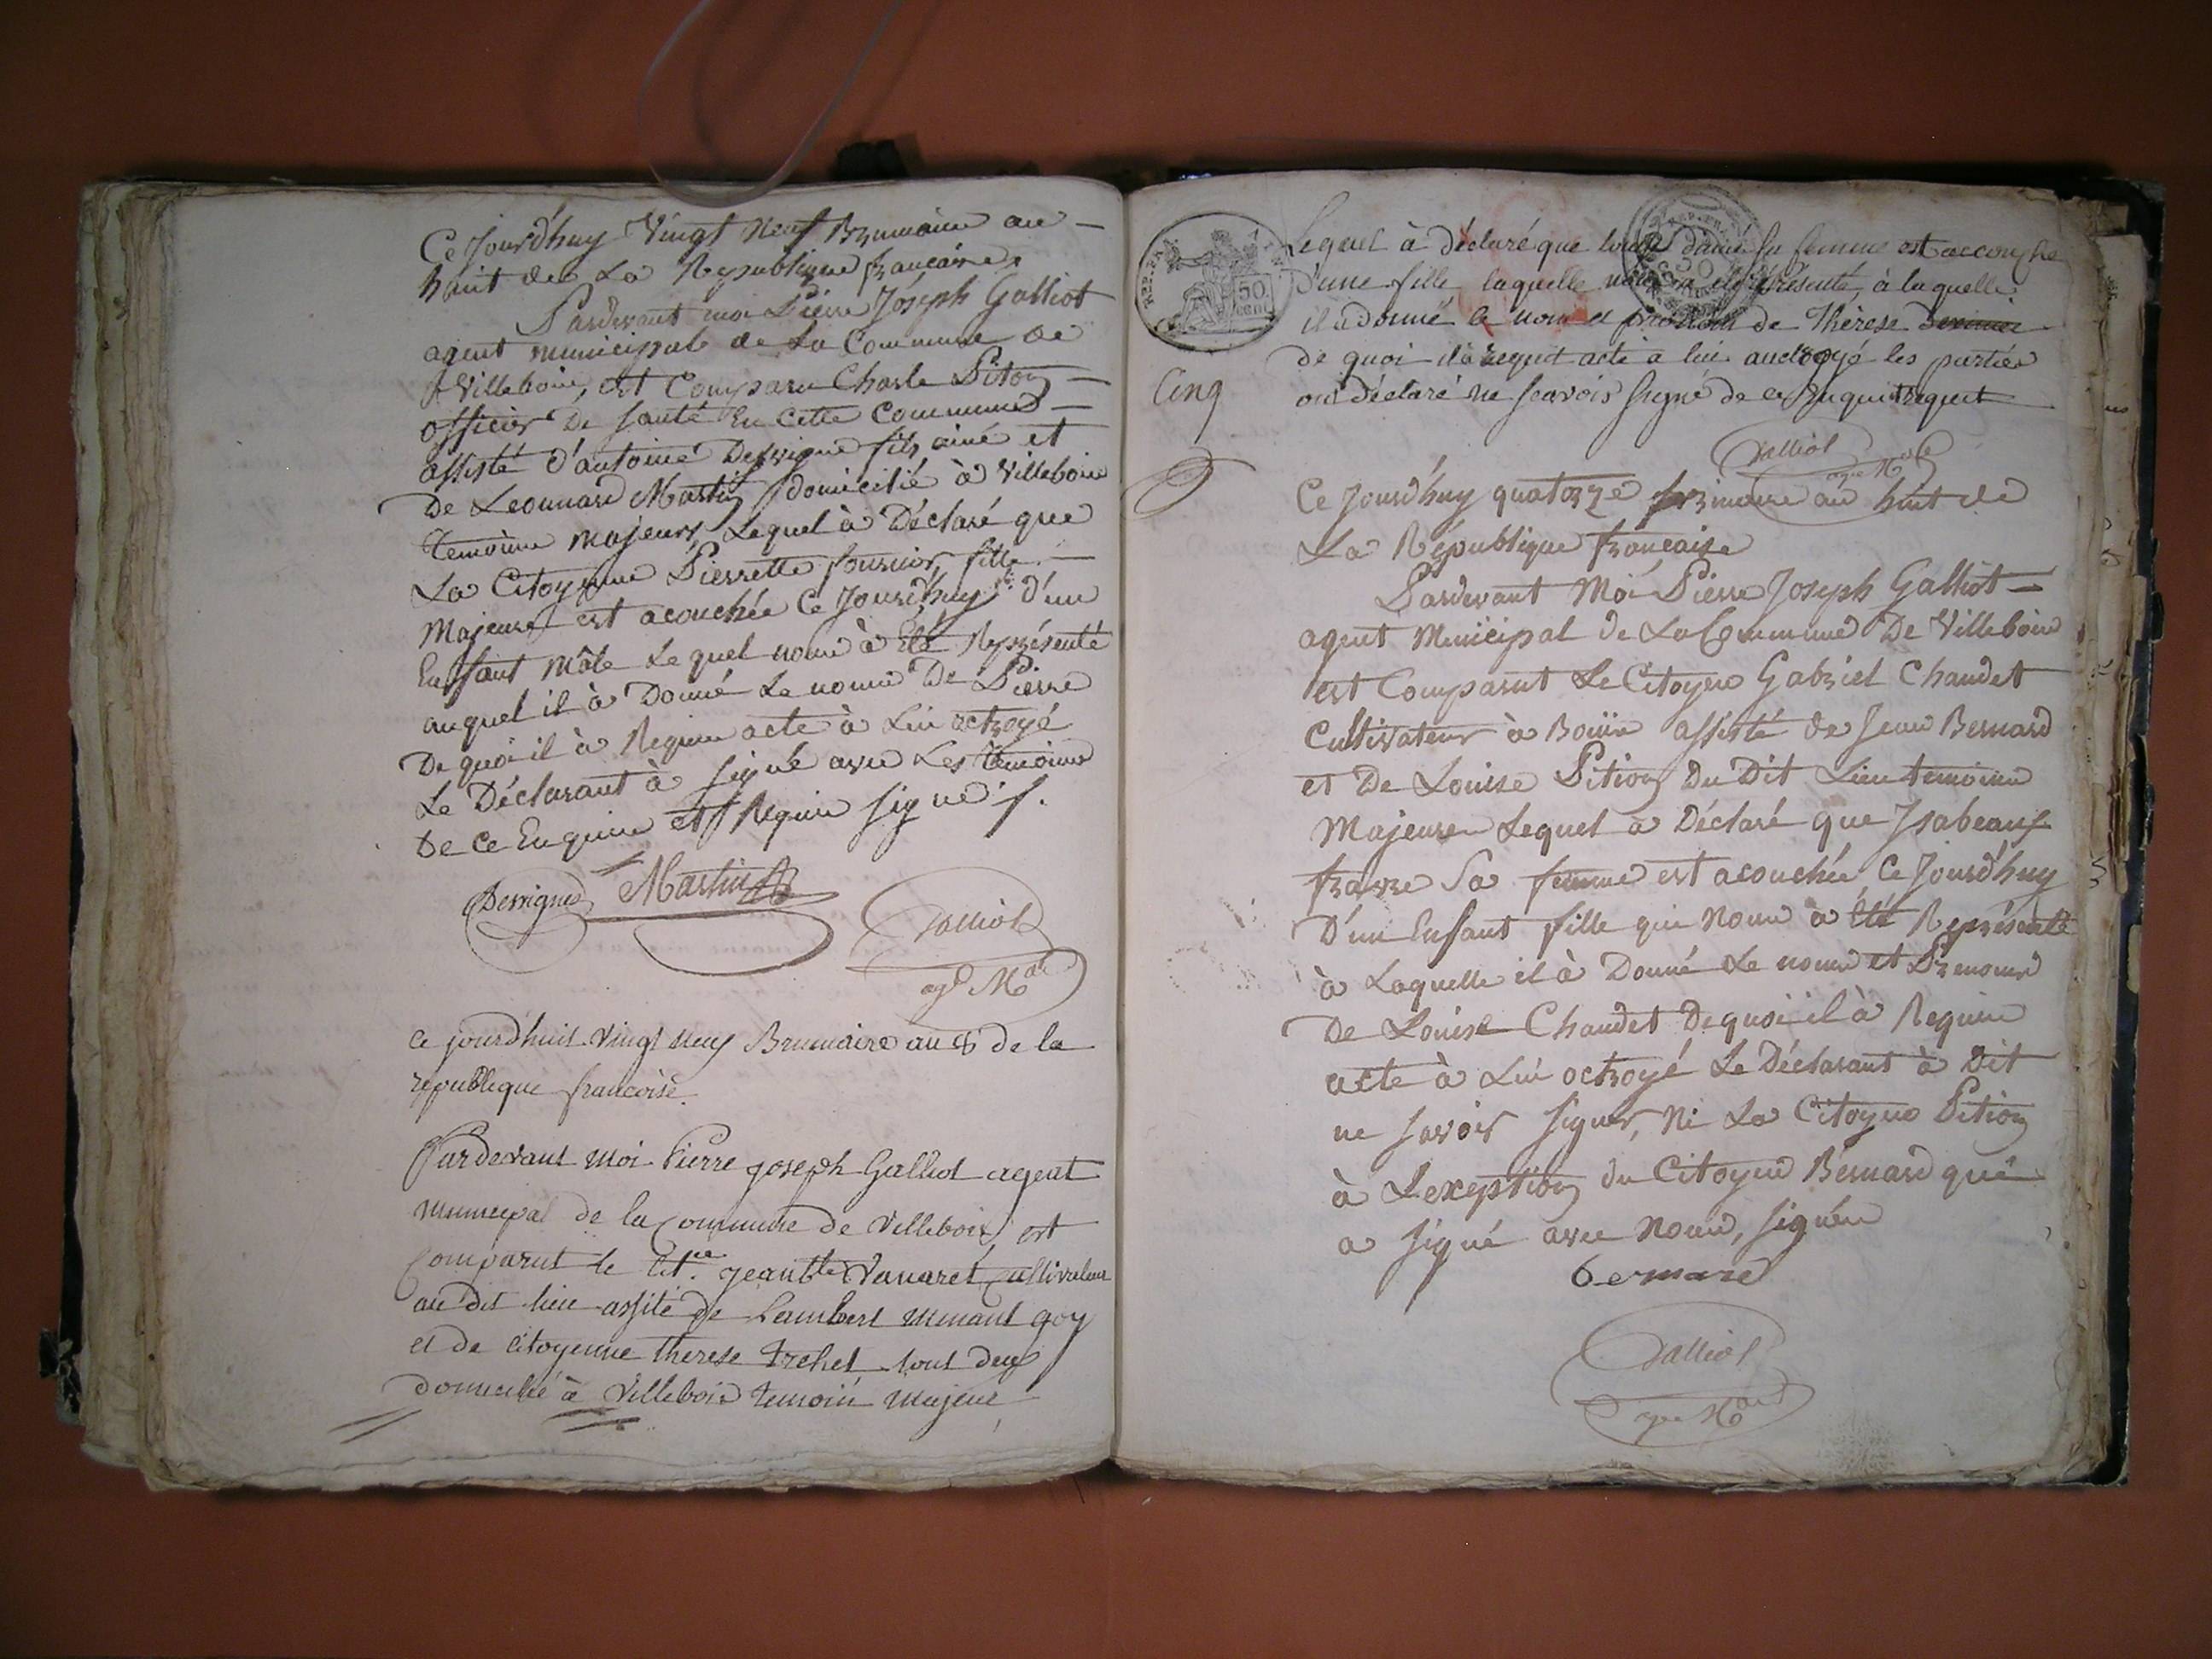 Ce Jourd'huy Vingt Neuf Brumaire an —
huit de La Republique française
Pardevant moi Pierre Joseph Galliot
agent municipale de La Commune de
Villebois, est Comparu Charle Piton —
officier De santé En Cette Commune —
assisté d'antoine Dervigne fils ainé et
De Leonnard Martin domicilié à Villebois
temoins majeurs, Lequel à Déclaré que
La Citoyenne Pierrette fournier, fille —
Majeure est acouchée Ce Jourd'huy d'un
Enfant mâle Le quel nous à Eté Représenté
auquel il à Donné Le nom De Pierre
De quoi il à Requis acte à Lui octroyé
Le Déclarant à signé avec Les temoins
De Ce Enquis et Requis signé
Dervigne Martin
Galliot
agt Mal
ce jourd'huit Vingt neuf Brumaire an 8 de la
republique francoise
Pardevant moi Pierre joseph Galliot agent
municipal de la Commune de Villebois, est
Comparut le Cit. jean Vanaret Cultivateur
au dit lieu assité de Lambert goy
et de citoyenne therese trehet tout deux
domicilié à Villebois temoin majeur
REP. FRA.
50
cent
Lequel à déclaré que sa femme est accouché
d'une fille laquelle nous a été présenté, à laquelle
il a donné le nom et prenom de Thérese
de quoi il à requit acte a lui audroyé les parties
Cinq
ont déclaré ne scavoir signé de ce enquit requit
Galliot
Ce Jourd'huy quatorze frimaire an huit de
La République française
Pardevant Moi Pierre Joseph Galliot —
agent Municipal de La Commune De Villebois
est Comparut Le Citoyen Gabriel Chaudet
Cultivateur à Bouis assisté de Jean Bernard
et De Louise Pition Du Dit Lieu temoins
Majeurs Lequel à Déclaré que Isabeau
sa femme est acouchée Ce Jourd'huy
D'un Enfant fille qui Nous à Eté Représenté
à Laquelle il à Donné Le nom et Prenom
De Louise Chaudet De quoi il à Requis
acte à Lui octroyé Le Déclarant à Dit
ne savoir signer, Ni La Citoyne Pition
à Lexeption du Citoyen Bernard qui
a signé avec Nous, signés
bernard
Galliot